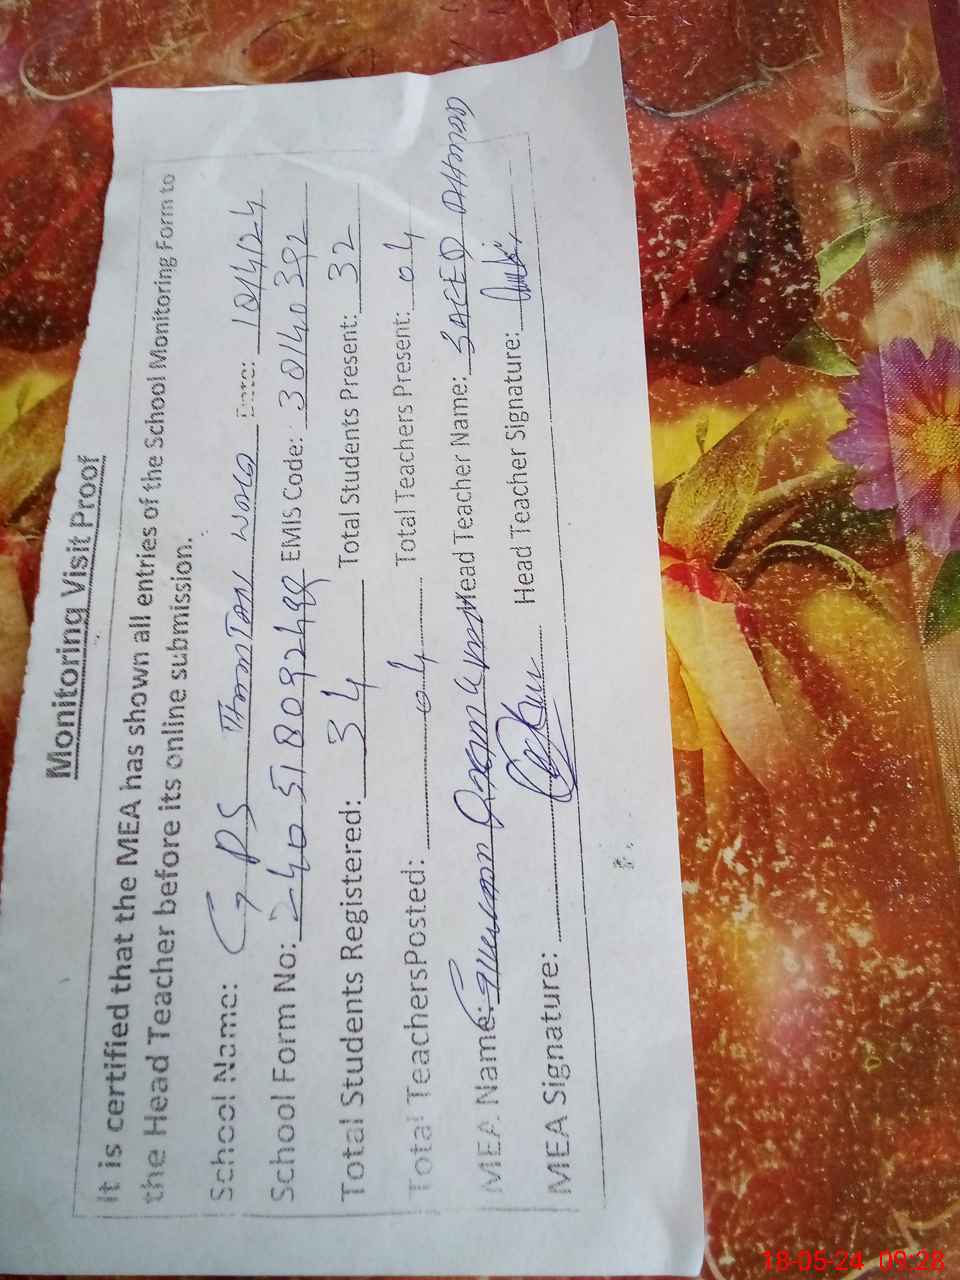 Monitoring Visit Proof
It is certified that the MEA has shown all entries of the School Monitoring Form to
the Head Teacher before its online submission.
School Name: GPS Date:
School Form No: 24051809249 EMIS Code: 30140392
Total Students Registered: 34 Total Students Present: 32
Total TeachersPosted: 04 Total Teachers Present: 04
MEA Name: Head Teacher Name: SAEED AHMAD
MEA Signature: Head Teacher Signature:
18-05-24 09:28